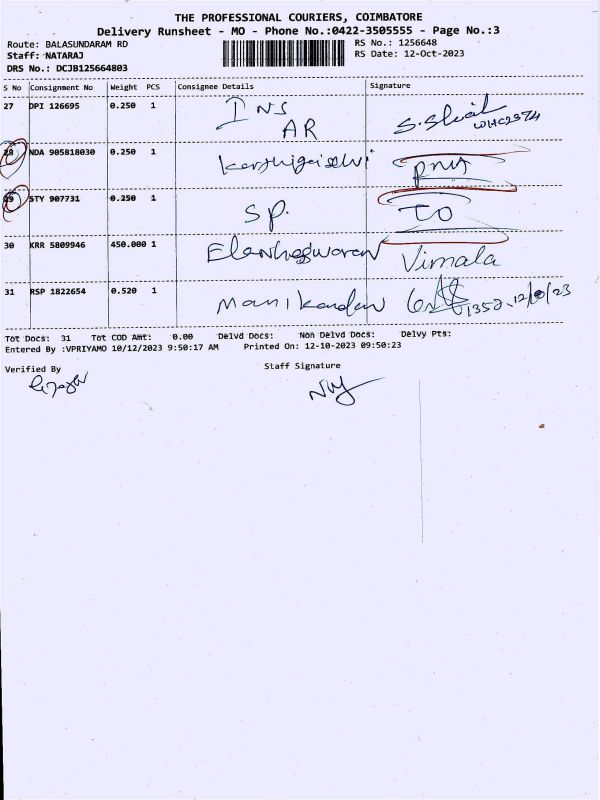 THE PROFESSIONAL COURIERS, COIMBATORE
Delivery Runsheet - MO - Phone No.:0422-3505555 - Page No.:3
Route: BALASUNDARAM RD RS No.: 1256648
Staff: NATARAJ RS Date: 12-Oct-2023
DRS No.: DCJB125664803
S No Consignment No Weight PCS Consignee Details Signature
27 DPI 126695 0.250 1 INS AR
28 NDA 905818030 0.250 1
29 STY 907731 0.250 1 SP.
30 KRR 5809946 450.000 1 Vimala
31 RSP 1822654 0.520 1 Manikandan
Tot Docs: 31 Tot COD Amt: 0.00 Delvd Docs: Non Delvd Docs: Delvy Pts:
Entered By :VPRIYAMO 10/12/2023 9:50:17 AM Printed On: 12-10-2023 09:50:23
Verified By Staff Signature